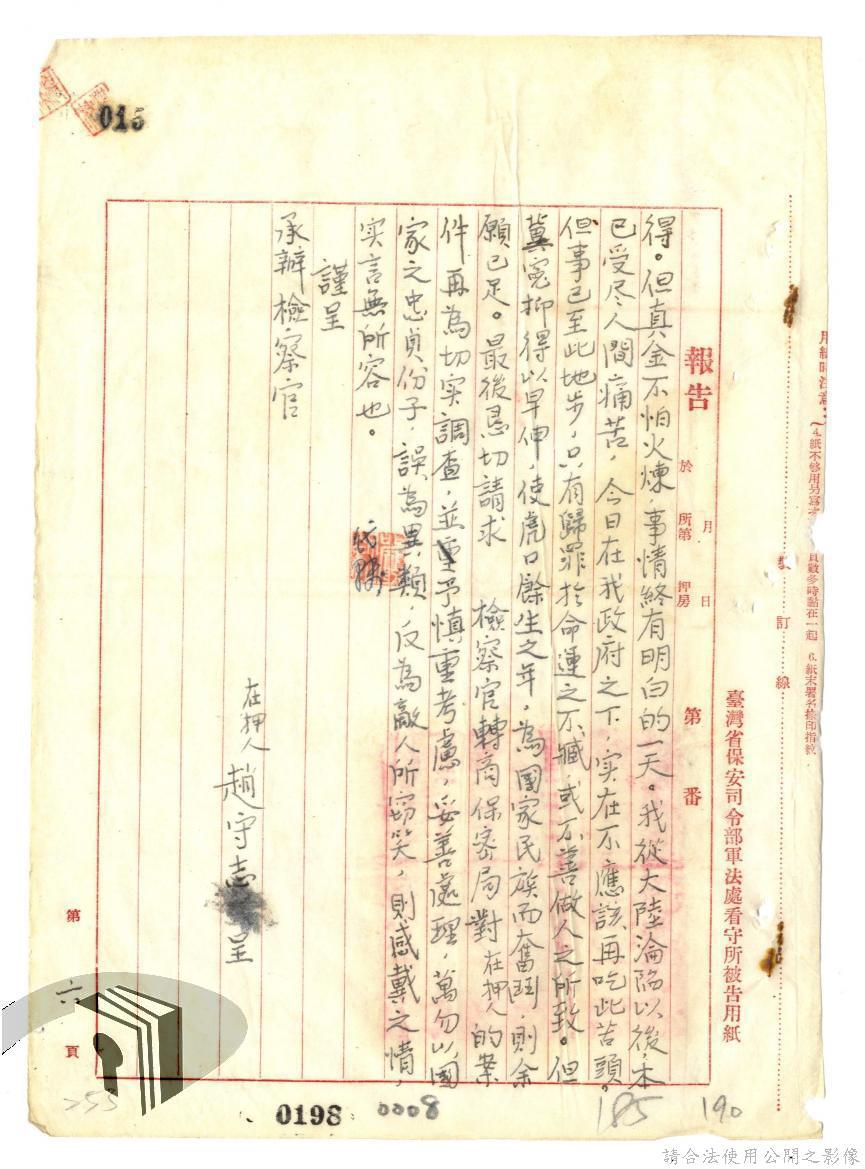 015
用紙時注意：(4.紙不够用另寫 頁數多時黏在一起 6.紙末署名捺印指紋
訂 線
臺灣省保安司令部軍法處看守所被告用紙
報告 於 月 日 所第 押房 第 番
得。但真金不怕火煉，事情終有明白的一天。我從大陸淪陷以後，本
已受尽人間痛苦，今日在我政府之下，实在不應該再吃此苦頭。
但事已至此地步，只有歸罪於命運之不臧，或不善做人之所致。但
冀冤抑得以早伸，使虎口餘生之年，為國家民族而奮鬥，則余
願已足。最後恳切請求 檢察官轉商保密局對在押人的案
件再為切实調查，並重予慎重考慮，妥善處理，萬勿以國
家之忠貞份子，誤為異類，反為敵人所窃笑，則感戴之情，
实言無所容也。
謹呈
承辦檢察官
在押人 趙守志 呈
第 六 頁
255
0198
0008
185
190
請合法使用公開之影像